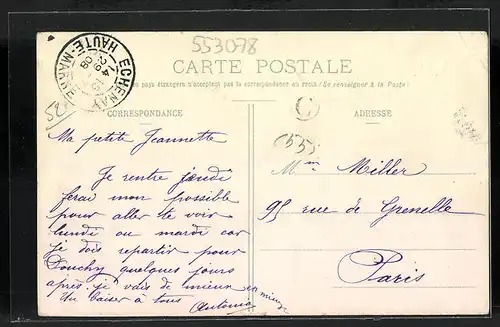 553078
ECHENAY
14 15
29
08
HAUTE-MARNE
CARTE POSTALE
pays étrangers n'acceptent pas la correspondance au recto (Se renseigner à la Poste)
CORRESPONDANCE
ADRESSE
52
C
C555
Ma petite Jeannette
Je rentre jeudi
ferai mon possible
pour aller te voir
lundi ou mardi car
je dois repartir pour
Douchy quelques jours
après. je vais de mieux en mieux
Un baiser à tous
Antonia
Mme Miller
95 rue de Grenelle
Paris